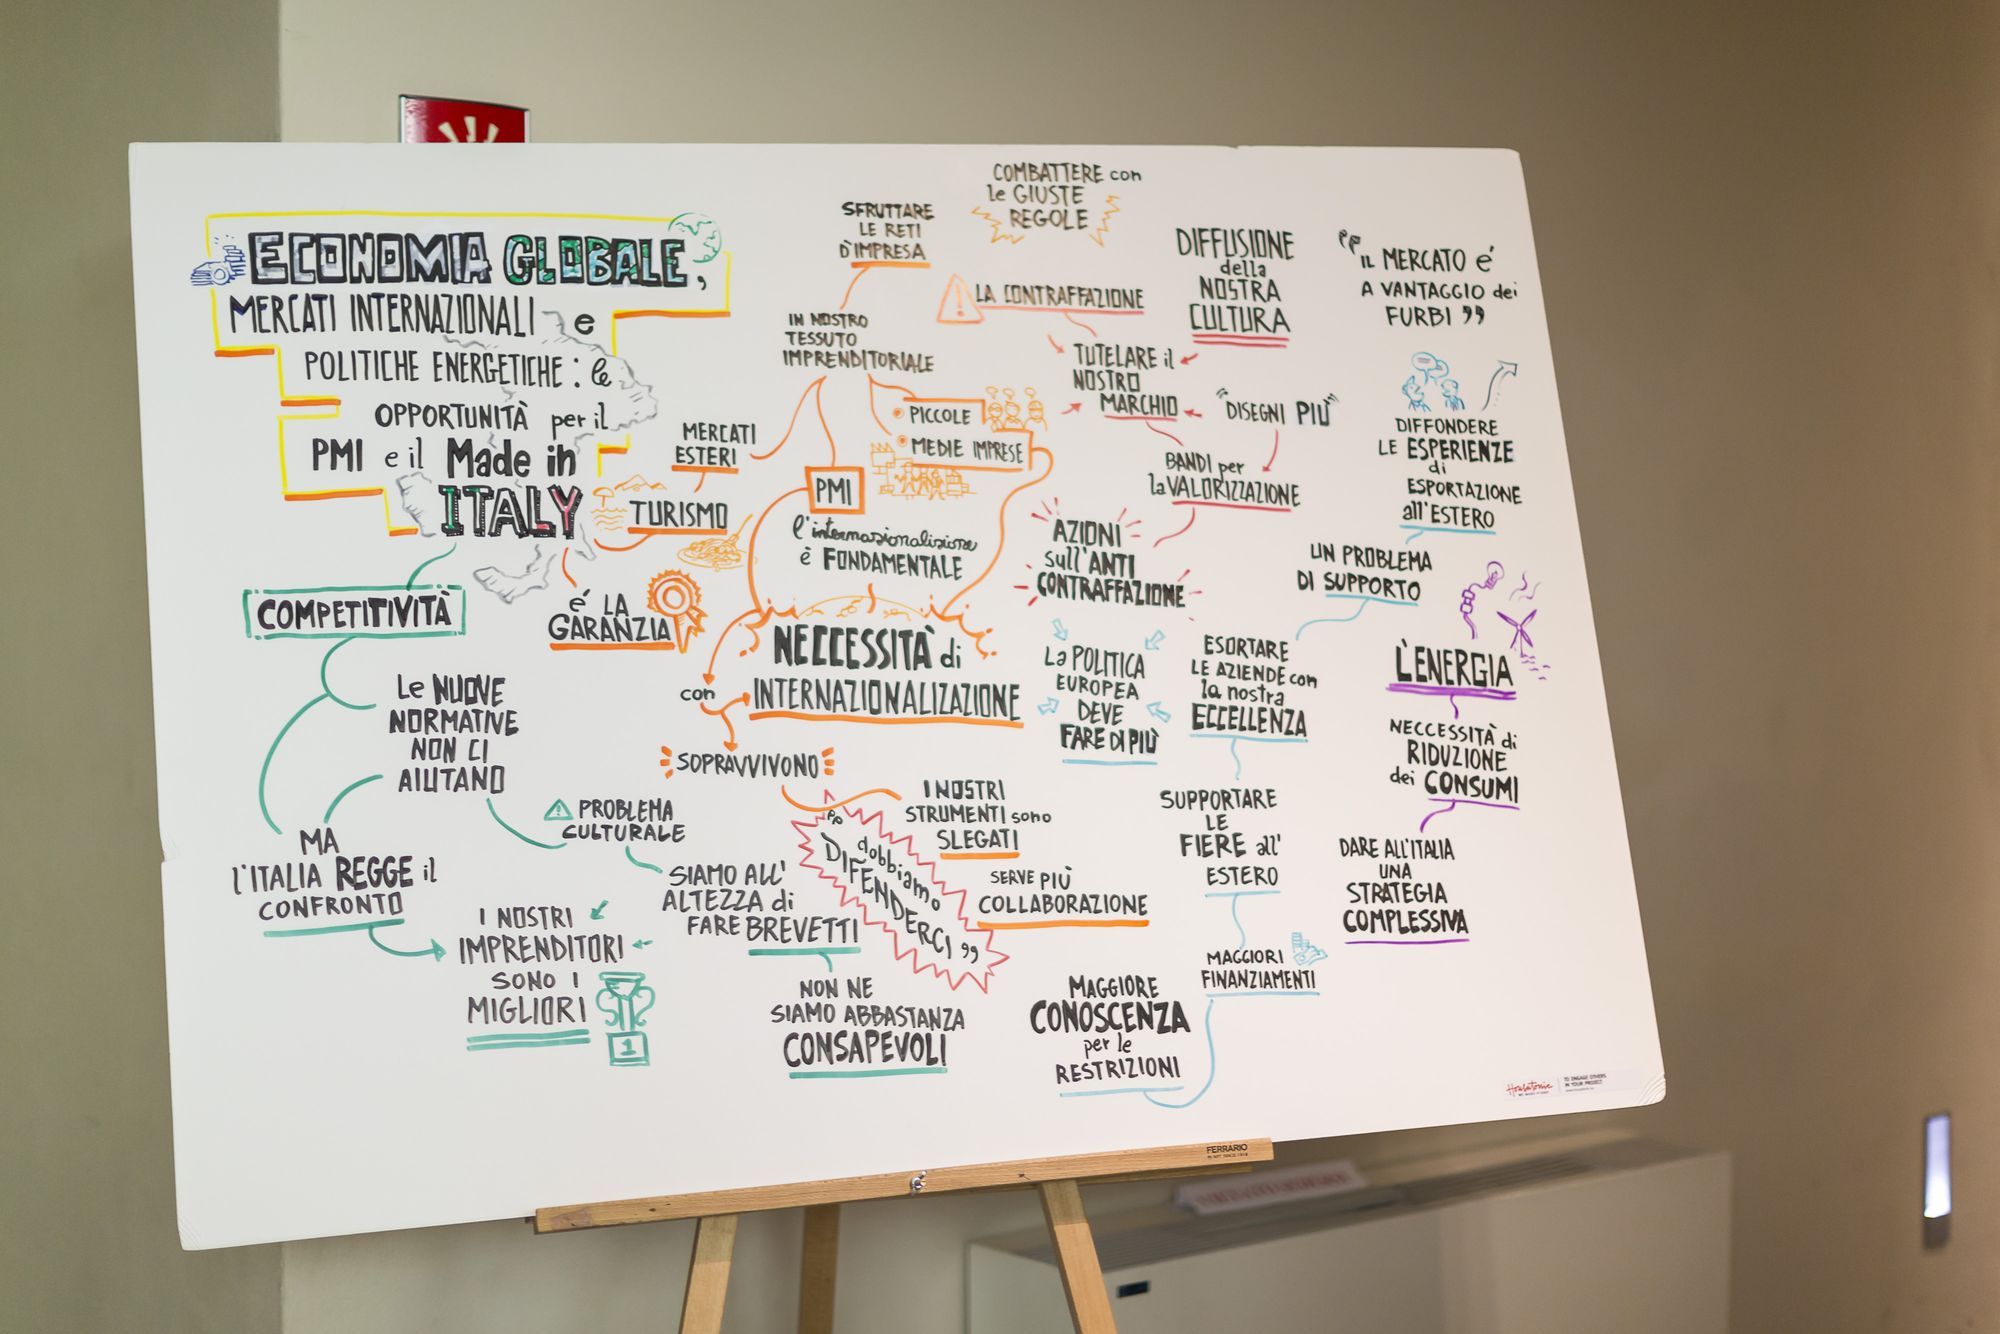 ECONOMIA GLOBALE,
MERCATI INTERNAZIONALI e
POLITICHE ENERGETICHE: le
OPPORTUNITÀ per il
PMI e il Made in
ITALY
COMPETITIVITÀ
Le NUOVE
NORMATIVE
NON CI
AIUTANO
MA
l'ITALIA REGGE il
CONFRONTO
I NOSTRI
IMPRENDITORI
SONO I
MIGLIORI
1
PROBLEMA
CULTURALE
SIAMO ALL'
ALTEZZA di
FARE BREVETTI
NON NE
SIAMO ABBASTANZA
CONSAPEVOLI
é LA
GARANZIA
TURISMO
MERCATI
ESTERI
SFRUTTARE
LE RETI
D'IMPRESA
IN NOSTRO
TESSUTO
IMPRENDITORIALE
PICCOLE
MEDIE IMPRESE
PMI
l'internazionalizione
è FONDAMENTALE
NECCESSITÀ di
INTERNAZIONALIZAZIONE
con
SOPRAVVIVONO
I NOSTRI
STRUMENTI sono
SLEGATI
SERVE PIÙ
COLLABORAZIONE
"dobbiamo
DIFENDERCI"
COMBATTERE con
le GIUSTE
REGOLE
LA CONTRAFFAZIONE
DIFFUSIONE
della
NOSTRA
CULTURA
TUTELARE il
NOSTRO
MARCHIO
"DISEGNI PIÙ"
BANDI per
la VALORIZZAZIONE
AZIONI
sull'ANTI
CONTRAFFAZIONE
La POLITICA
EUROPEA
DEVE
FARE DI PIÙ
"IL MERCATO é
A VANTAGGIO dei
FURBI"
DIFFONDERE
LE ESPERIENZE
di
ESPORTAZIONE
all'ESTERO
UN PROBLEMA
DI SUPPORTO
ESORTARE
LE AZIENDE con
la nostra
ECCELLENZA
SUPPORTARE
LE
FIERE all'
ESTERO
MAGGIORI
FINANZIAMENTI
MAGGIORE
CONOSCENZA
per le
RESTRIZIONI
L'ENERGIA
NECCESSITÀ di
RIDUZIONE
dei CONSUMI
DARE ALL'ITALIA
UNA
STRATEGIA
COMPLESSIVA
Housatonic
TO ENGAGE OTHERS
IN YOUR PROJECT
FERRARIO